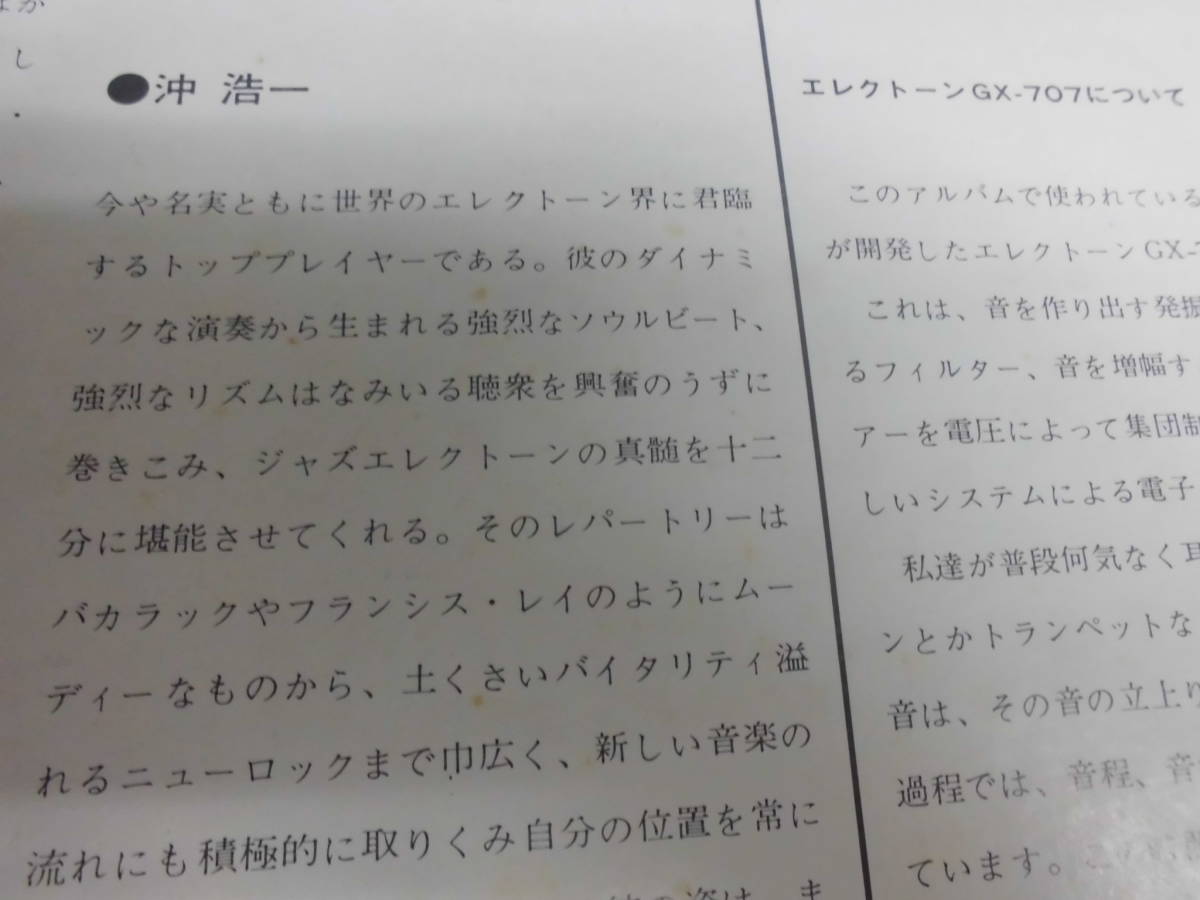 し
●沖 浩一
今や名実ともに世界のエレクトーン界に君臨
するトッププレイヤーである。彼のダイナミ
ックな演奏から生まれる強烈なソウルビート、
強烈なリズムはなみいる聴衆を興奮のうずに
巻きこみ、ジャズエレクトーンの真髄を十二
分に堪能させてくれる。そのレパートリーは
バカラックやフランシス・レイのようにムー
ディーなものから、土くさいバイタリティ溢
れるニューロックまで巾広く、新しい音楽の
流れにも積極的に取りくみ自分の位置を常に
エレクトーンGX-707について
このアルバムで使われている
が開発したエレクトーンGX-
これは、音を作り出す発振
るフィルター、音を増幅す
アーを電圧によって集団制
しいシステムによる電子
私達が普段何気なく耳
ンとかトランペットな
音は、その音の立上り
過程では、音程、音
ています。